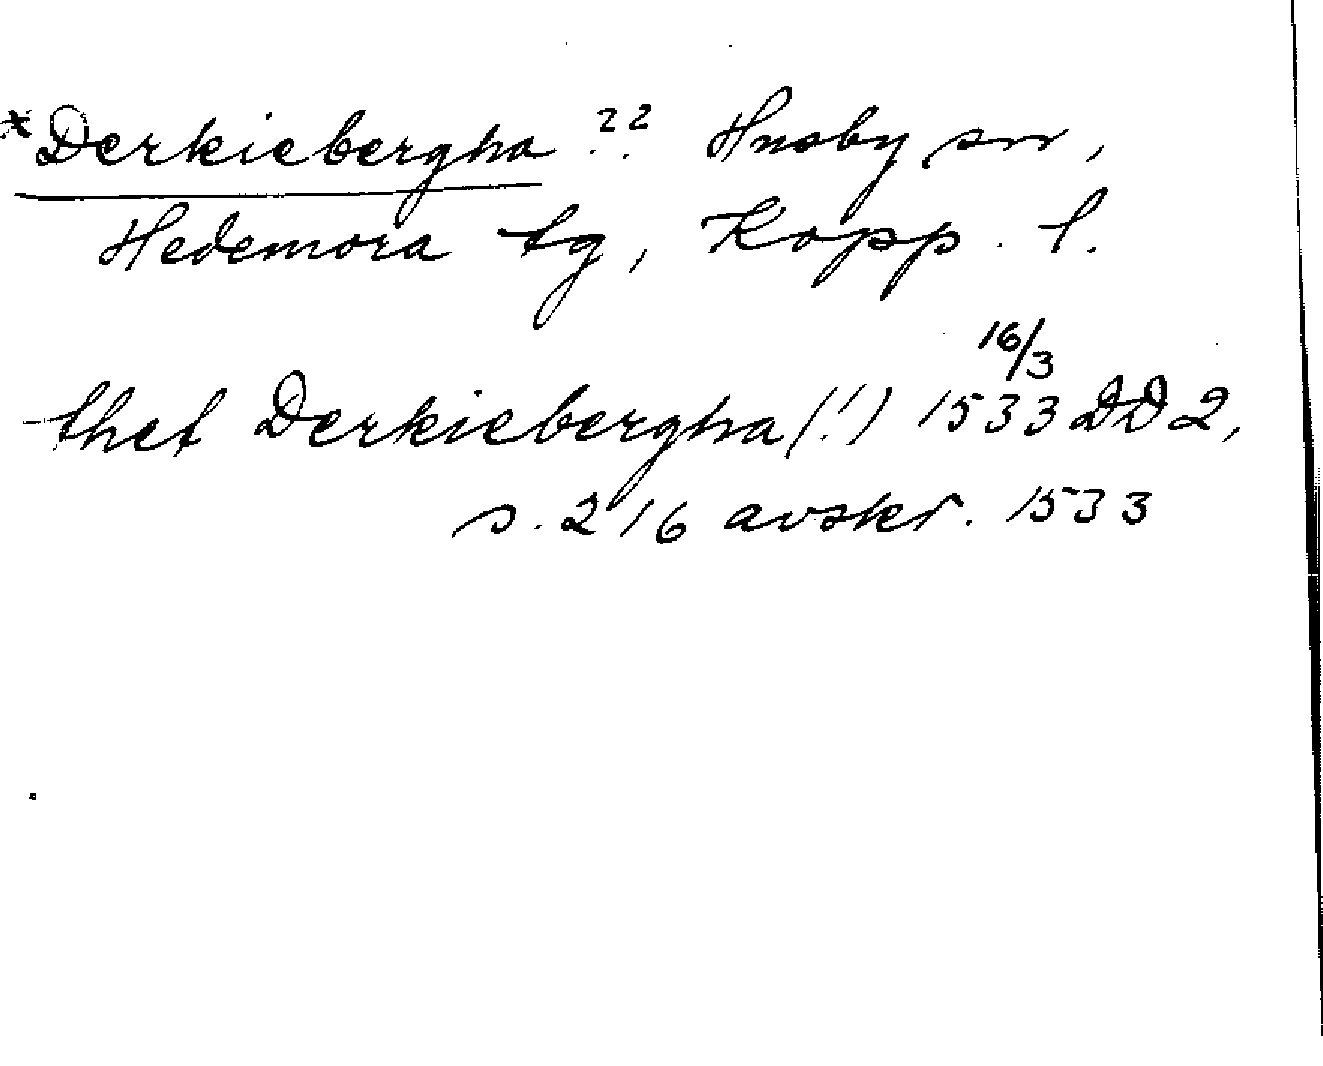 *Derkiebergha ?? Husby sn,
Hedemora tg, Kopp. l.
thet Derkiebergha (!) 16/3 1533 DD 2,
s. 216 avskr. 1533